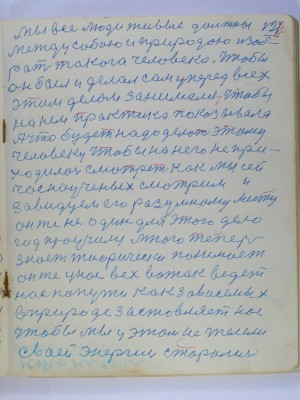 мы все люди живые должны
между собою и природою изоб
рат такога человека. Чтобы
он был и делал сам уперед всех
этим делом занимался, Чтобы
на нем практика показывала
А что будет надо делать этому
человеку Чтобы на него не при-
ходилос смотрет как мы сей
час на ученых смотрим и
завидуем его разумному месту
он же не один для этого дело
год проучился много теперь
знает теорически понимает
он же у нас всех вожак ведет
нас по пути как зависемых
в природе заставляет нас
Чтобы мы у этом не жалели
Сваей Энергии старания